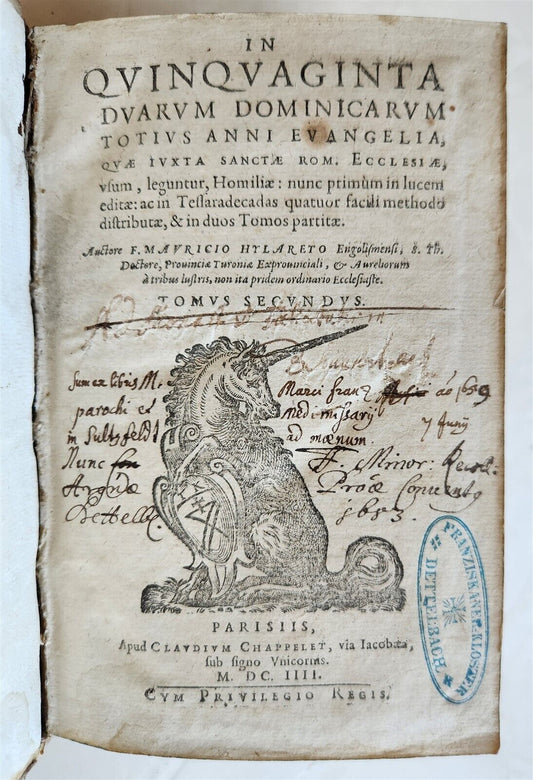 IN
QVINQVAGINTA
DVARVM DOMINICARVM
TOTIVS ANNI EVANGELIA,
QVÆ IVXTA SANCTÆ ROM. ECCLESIÆ,
vſum, leguntur, Homiliæ: nunc primùm in lucem
editæ: ac in Teſſaradecadas quatuor facili methodo
diſtributæ, & in duos Tomos partitæ.
Auctore F. MAVRICIO HYLARETO Engoliſmenſi, S. Th.
Doctore, Prouinciæ Turoniæ Exprouinciali, & Aureliorum
à tribus luſtris, non ita pridem ordinario Eccleſiaſte.
TOMVS SECVNDVS.
Sum ex libris M. Marci Franz ao 1659
parochi et
in Sultsfeldt ad mœnum. 7 Junij
Nunc F. Minor:
Conventus
1653.
FRANZISKANER-KLOSTER
DETTELBACH
PARISIIS,
Apud CLAVDIVM CHAPPELET, via Iacobæa,
ſub ſigno Vnicornis.
M. DC. IIII.
CVM PRIVILEGIO REGIS.